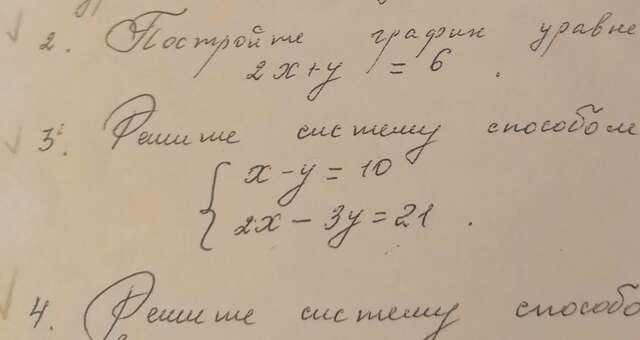 2. Постройте график уравне
2x+y = 6 .
3. Решите систему способом
x-y=10
2x-3y=21 .
4. Решите систему способо